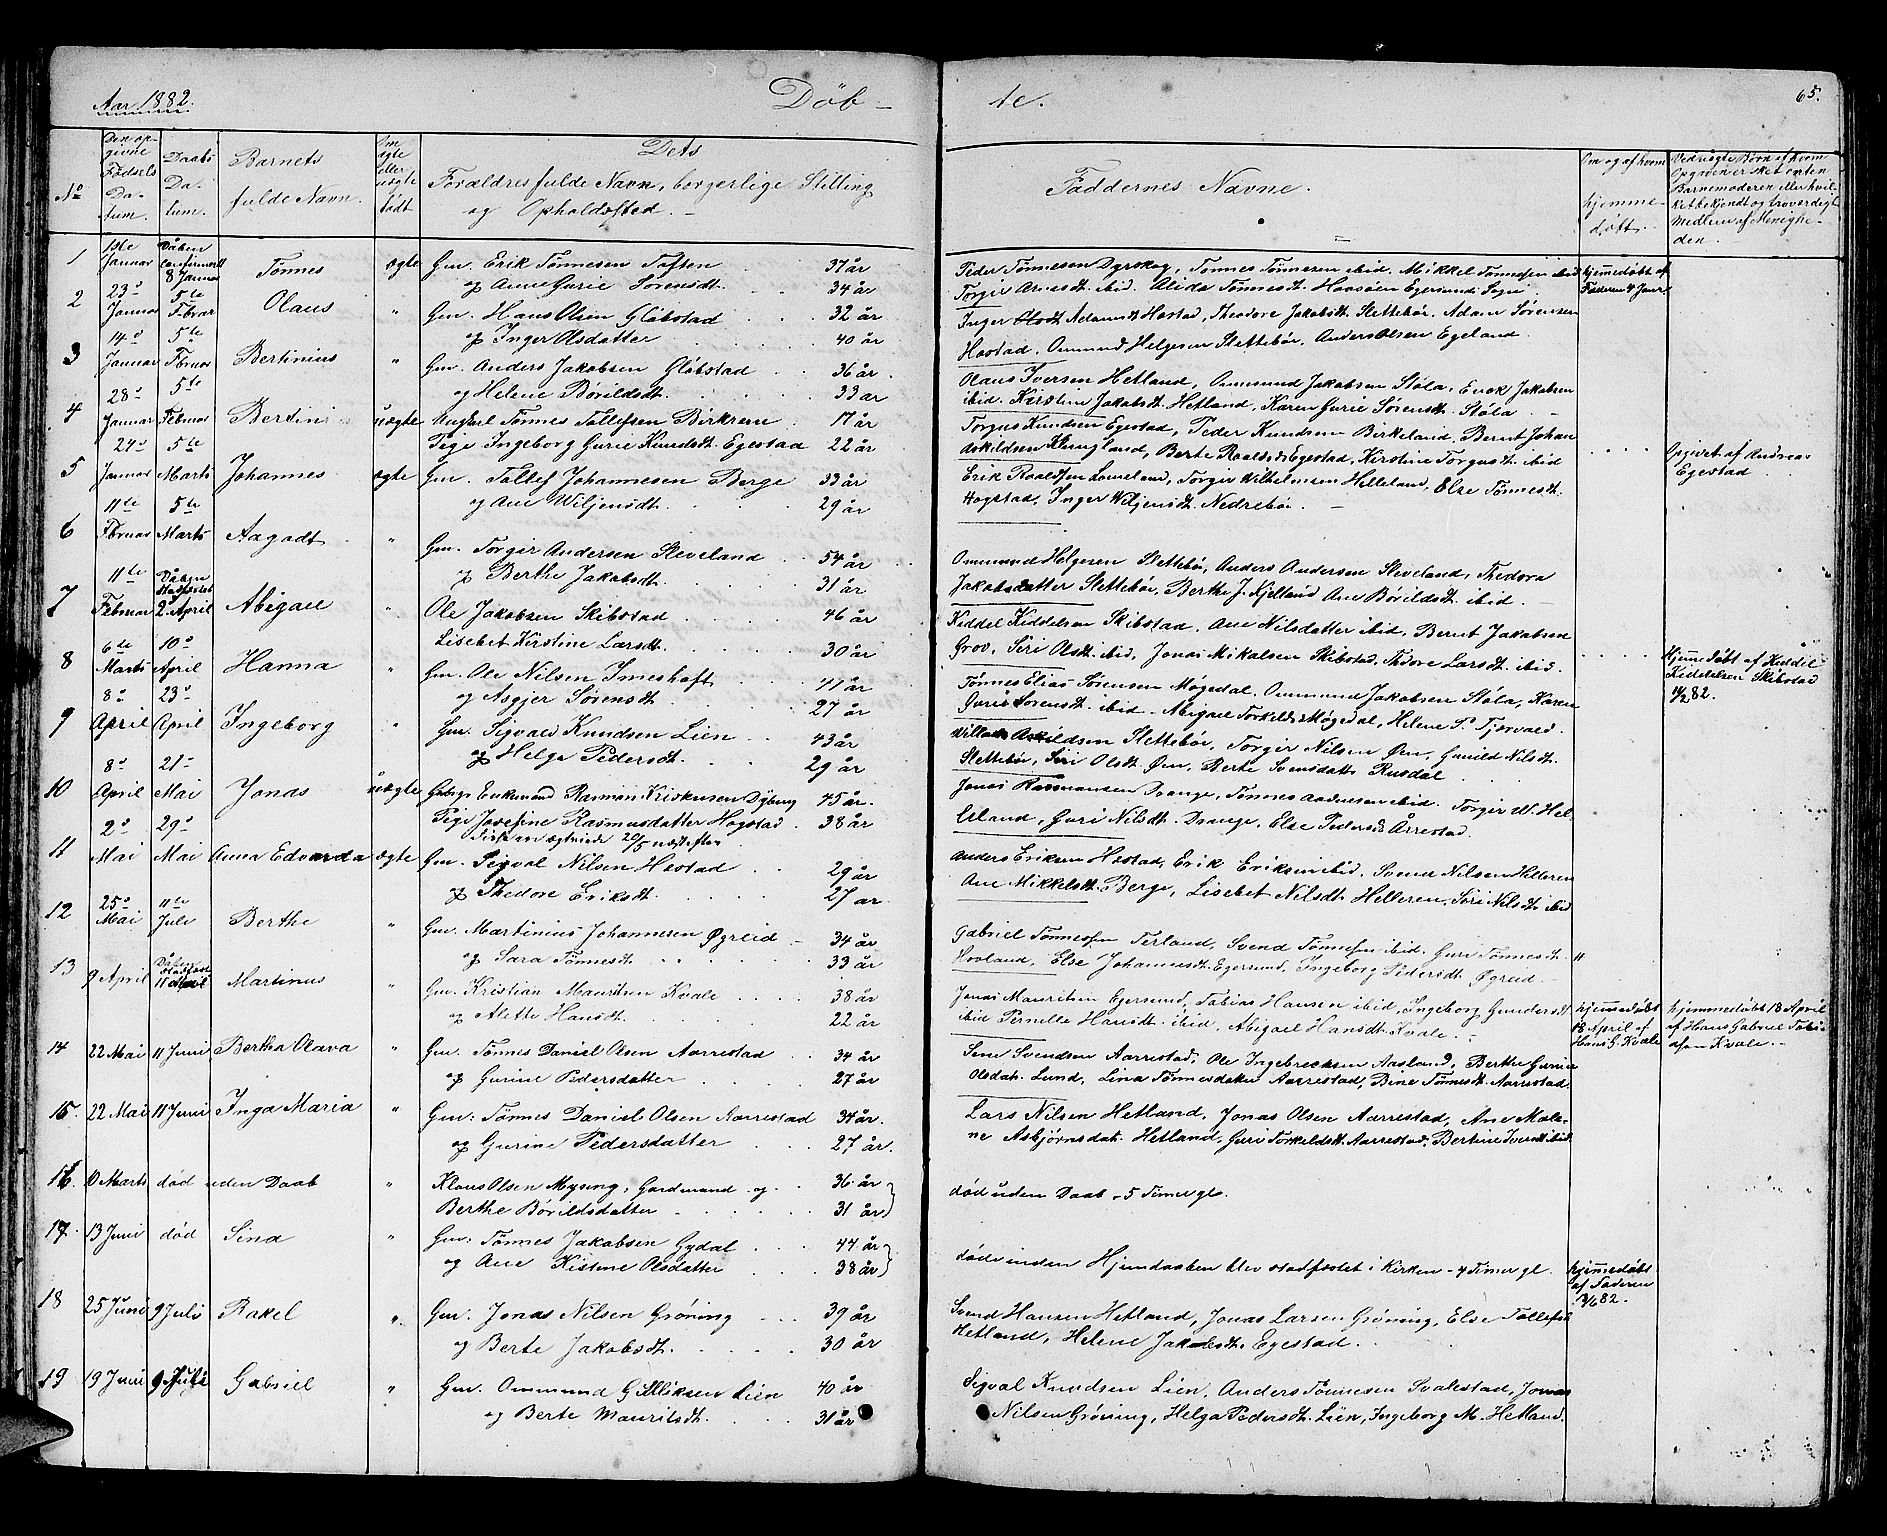 Aar 1882.
Döb-
te.
65.
No
Den op-
givne
Fødsels
Da-
tum.
Daabs
Da-
tum.
Barnets
fulde Navn.
Om
ægte
eller
uægte
födt
Dets
Forældres fulde Navn, borgerlige Stilling
og Opholdssted.
Faddernes Navne.
Om og af hvem
hjemme-
döbt.
Ved uægte Børn af hvem
Opgiven er sket enten
Barnemoderen eller hvil-
ket bekjendt og troværdigt
Medlem af Menighe-
den.
1 1ste Januar Dåben confirmert 8 Januar Tönnes ægte Gm. Erik Tönnesen Toften 37 år
og Anne Gurie Sörensdt. 34 år
Peder Tønnesen Dyrskog, Tønnes Tönnesen ibid. Mikkel Tönnesen ibid
Torgir Arnesdt. ibid. Alida Tønnesdt. Haasöen Egersunds Sogn
hjemmedöbt af
Faderen 4 Janr.
2 23de Januar 5te Febvar Olaus " Gm. Hans Olsen Glöbstad 32 år
og Inger Olsdatter 40 år
Inger Adamsdt. Hæstad, Theodore Jakobsdt. Slettebör, Adam Sörensen
Hæstad, Ommund Helgesen Slettebör, Anders Olsen Egeland.
3 14de Januar 5te Fbruar Bertinius " Gm. Anders Jakobsen Glöbstad 36 år.
og Helene Börildsdt. 33 år
Olaus Iversen Hetland, Ommund Jakobsen Stöla, Enok Jakobsen
ibid. Kirstine Jakobsdt. Hetland, Karen Gurie Sörensdt. Stöla
4 28de Januar 5te Februar Bertine uægte Ungkarl Tönnes Tollefsen Birkrem 17 år
Pige Ingeborg Gurie Knudsdt. Egestad 22 år
Torgus Knudsen Egestad, Peder Knudsen Birkeland, Bernt Johan
Askildsen Klungland, Berte Roaldsdt. Egestad, Kirstine Torgusdt. ibid
Opgivet af Andreas
Egestad
5 24de Januar 5te Marts Johannes ægte Gm. Tollef Johannesen Berge 33 år
og Ane Wiljensdt. 29 år
Erik Roaldsen Lauveland, Torgir Wilhelmsen Helleland, Else Tönnesdt.
Hogstad, Inger Wiljensdt. Nedrebö.
6 11te Fbruar 5te Marts Aagadt " Gm. Torgir Andersen Sleveland 54 år
og Berthe Jakobsdt. 31 år
Ommund Helgesen Slettebör, Anders Andersen Sleveland, Thedora
Jakobsdatter Slettebör, Berthe J. Kjelland, Ane Börildsdt. ibid.
7 11te Februar Dåben Stadfæstet 2 April Abigael " Ole Jakobsen Skibstad 46 år
Lisebet Kirstine Larsdt. 30 år
Kiddel Kiddelsen Skibstad, Ane Nilsdatter ibid, Bernt Jakobsen
Grov, Siri Olsdt. ibid, Jonas Mikalsen Skibstad, Thedore Larsdt. ibid.
Hjemmedöbt af Kiddel
Kiddelsen Skibstad
11/2 82.
8 6te Marts 10de April Hanna " Gm. Ole Nilsen Imeshaft 41 år
og Asgjer Sörensdt. 27 år
Tönnes Elias Sörensen Møgedal, Ommund Jakobsen Stöla, Karen
Gurie Sörensdt. ibid. Abigael Torkildsdt. Møgedal, Helene P. Tjorvald.
9 8de April 23de April Ingeborg " Gm. Sigvald Knudsen Lien 43 år
og Helga Pedersdt. 29 år
Villads Askildsen Slettebör, Torgir Nilsen Øen, Gunild Nilsdt.
Slettebör, Siri Olsdt. Øen, Berte Svensdatter Rusdal
10 8de April 21de Mai Jonas uægte Enkemand Rasmus Kristensen Dyberg 45 år.
Pige Josefine Rasmusdatter Hogstad. 38 år
Jonas Rasmussen Drange, Tønnes Aadnesen ibid. Torgir W. Hel-
leland, Guri Nilsdt. Drange, Else Pedersdt. Årrestad.
11 2de Mai 29de Mai Anna Edvarda ægte Gm. Sigval Nilsen Hæstad 29 år
og Thedore Eriksdt. 27 år
Anders Eriksen Hæstad, Erik Eriksen ibid. Svend Nilsen Helleren
Ane Mikkelsdt. Berge, Lisebet Nilsdt. Helleren, Siri Nilsdt. ibid
12 25de Mai 11te Juli Berthe " Gm. Martinius Johannesen Øgreid 34 år
og Sara Tönnesdt. 33 år
Gabriel Tønnesen Terland, Svend Tönnesen ibid. Guri Tønnesdt.
Hovland, Else Johannesdt. Egersund, Ingeborg Pedersdt. Øgreid
"
13 9 April Dåben Martinus " Gm. Kristian Mauritsen Kvale 38 år
og Alette Hansdt. 22 år
Jonas Mauritsen Egersund, Tobias Hansen ibid, Ingeborg Gundersdt.
ibid Pernille Hansdt. ibid, Abigael Hansdt. Kvale.
hjemmedöbt
18 April af
Hans G. Kvale
hjemmedöbt 18 April
af Hans Gabriel Tobi-
asen Kvale.
14 22 Mai 11 Juni Bertha Olava " Gm. Tönnes Daniel Olsen Aarrestad 34 år
og Gurine Pedersdatter 27 år
Sem Svendsen Aarrestad, Ole Ingebrecksen Aasland, Berthe Gurine
Olsdat. Lund, Lina Tönnesdatter Aarrestad, Bine Tönnesdt. Aarrestad
15. 22 Mai 11 Juni Inga Maria " Gm: Tönnes Daniel Olsen Aarrestad 34 år.
og Gurine Pedersdatter 27 år.
Lars Nilsen Hetland, Jonas Olsen Aarrestad, Ane Male-
ne Asbjørnsdat. Hetland, Guri Torkildsdt. Aarrestad, Bertine Iversdt. ibid
16. 10 Marts död uden Daab " Klaus Olsen Mysing, Gardmand og 36 år
Berthe Börildsdatter 31 år
död uden Daab - 5 Timer gl.
17. 13 Juni död Sina Gm: Tönnes Jakobsen Gydal 44 år
og Ane Kistine Olsdatter 38 år
döde inden Hjemdaaben blev stadfæstet i Kirken - 4 Timer gl.
hjemmedöbt
af Faderen
13/6 82.
18 25 Juni 9 Juli Rakel " Gm. Jonas Nilsen Gröning 39 år
og Berte Jakobsdt. 30 år
Svend Hansen Hetland, Jonas Larsen Gröning, Else Tollefsdt.
Hetland, Helene Jakobsdt. Egestad.
19 19 Juni 9 Juli Gabriel " Gm. Ommund Gitliksen Lien 40 år
og Berte Mauritsdt. 31 år
Sigval Knudsen Lien, Anders Tönnesen Svalestad, Jonas
Nilsen Gröning, Helga Pedersdt. Lien, Ingeborg M. Hetland.